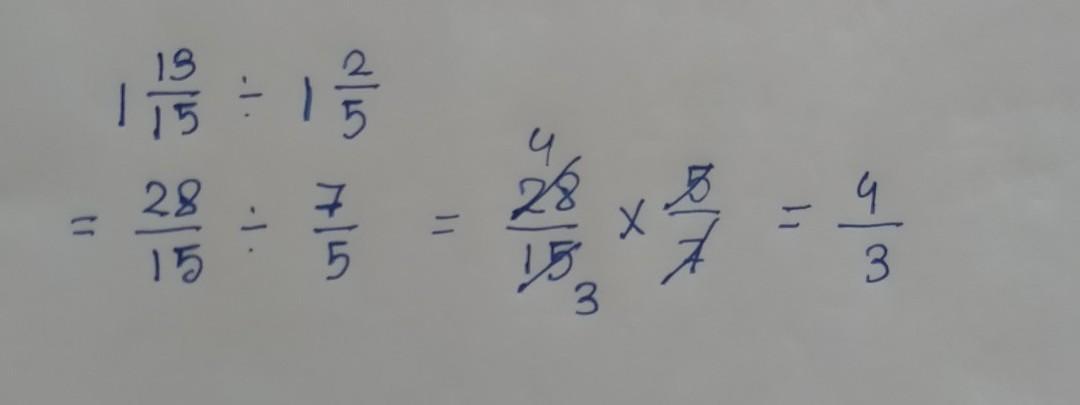 1 13/15 ÷ 1 2/5
= 28/15 ÷ 7/5 = 28/15 × 5/7 = 4/3
4
3